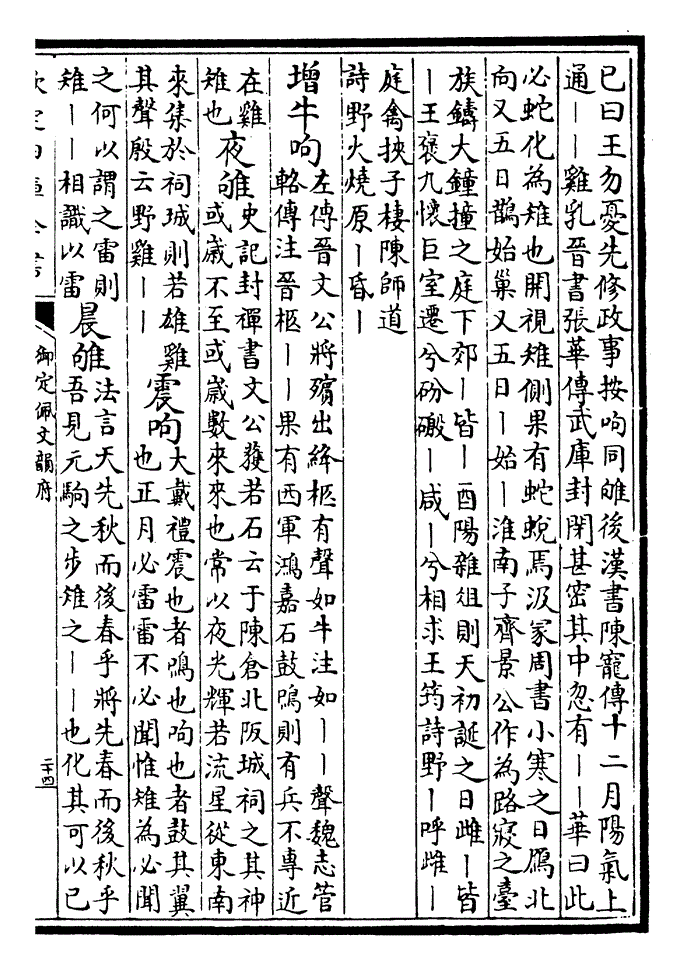 已曰王勿憂先修政事按呴同雊後漢書陳寵傳十二月陽氣上
通——雞乳晉書張華傳武庫封閉甚密其中忽有——華曰此
必蛇化為雉也開視雉側果有蛇蛻焉汲冢周書小寒之日鴈北
向又五日鵲始巢又五日—始—淮南子齊景公作為路寢之臺
族鑄大鐘撞之庭下郊—皆—酉陽雜俎則天初誕之日雌—皆
—王褒九懷巨室遷兮砏磤—咸—兮相求王筠詩野—呼雌—
庭禽挾子棲陳師道
詩野火燒原—昏—
增牛呴
左傳晉文公將殯出絳柩有聲如牛注如——聲魏志管
輅傳注晉柩——果有西軍鴻嘉石鼓鳴則有兵不專近
在雞
雉也
夜雊
史記封禪書文公獲若石云于陳倉北阪城祠之其神
或歲不至或歲數來來也常以夜光輝若流星從東南
來集於祠城則若雄雞
其聲殷云野雞——
震呴
大戴禮震也者鳴也呴也者鼓其翼
也正月必雷雷不必聞惟雉為必聞
之何以謂之雷則
雉——相識以雷
晨雊
法言天先秋而後春乎將先春而後秋乎
吾見元駒之步雉之——也化其可以已
欽定四庫全書
御定佩文韻府
二十四